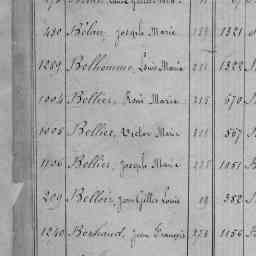 430 Bélan, Joseph Marie 1321
1259 Belhomme, Louis Marie 1322
1004 Bellier, René Marie 215 670
1005 Bellier, Victor Marie 567
1106 Bellier, Joseph Marie 1051
209 Bellier, Jean Gilles Louis 19 382
1240 Bertaud, Jean François 273 1156